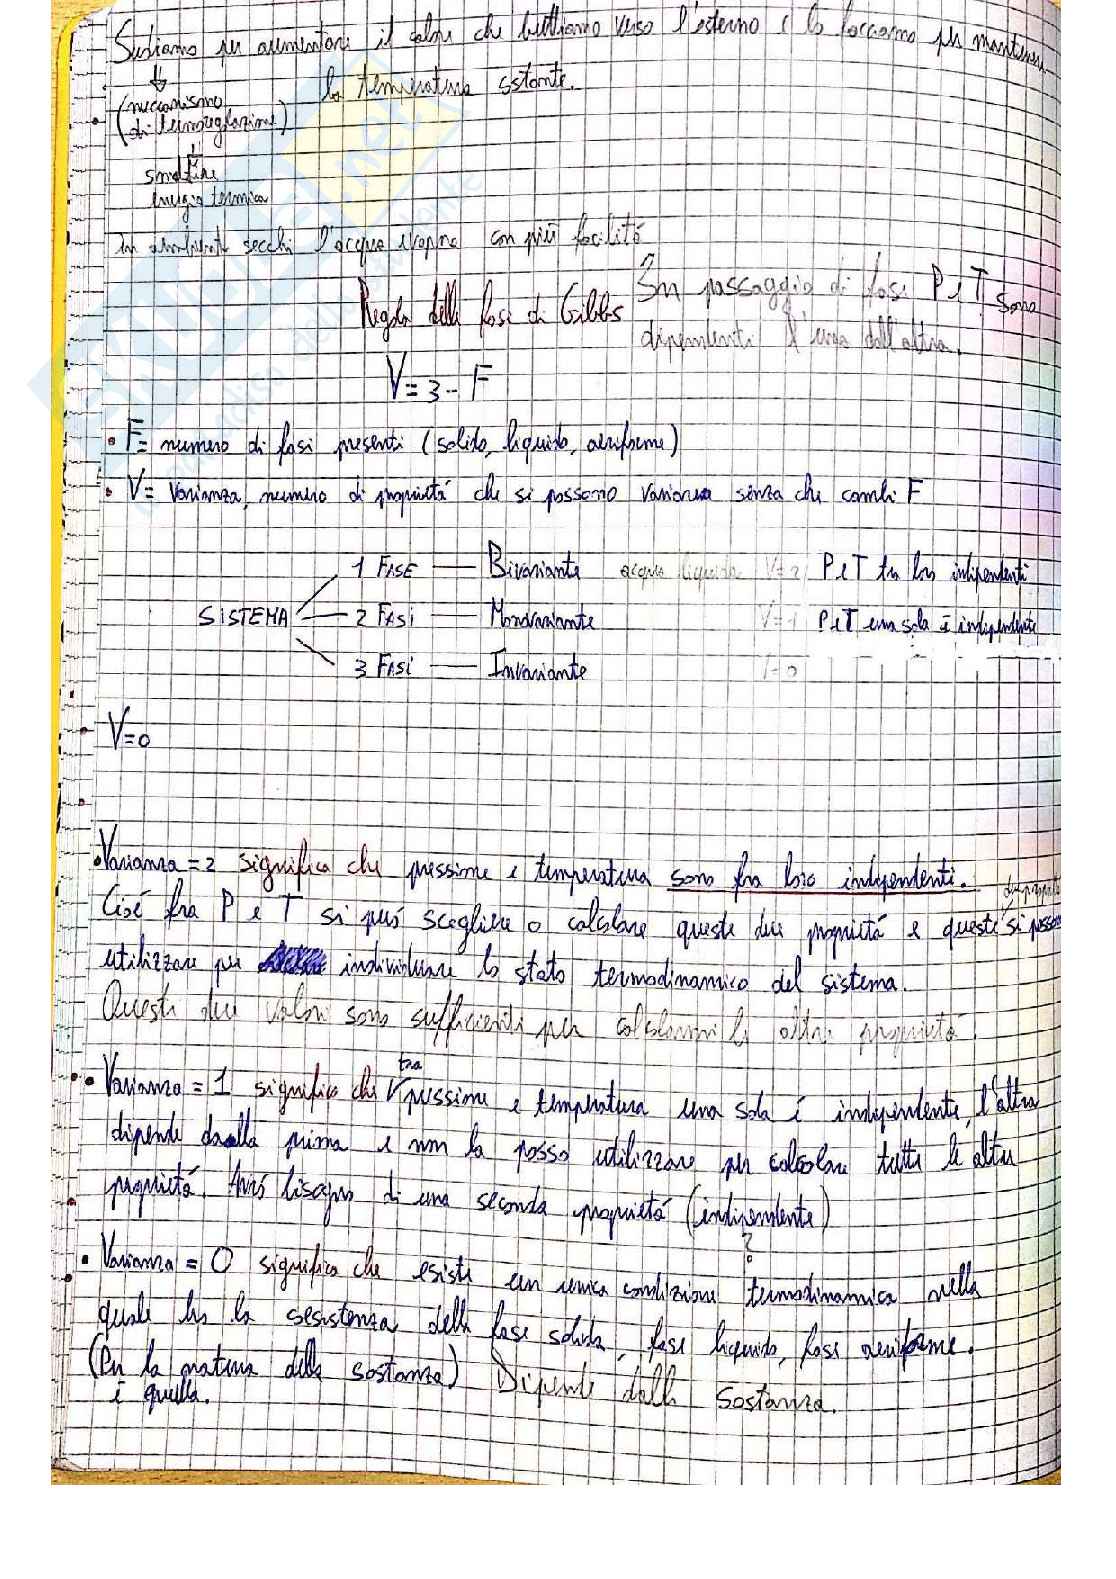 Sudiamo per aumentare il calore che buttiamo verso l'esterno e lo facciamo per mantenere
la temperatura costante.
(meccanismo
di termoreglazione)
smaltire
energia termica
In ambienti secchi l'acqua evapora con più facilità
Regola delle fasi di Gibbs
In passaggio di fasi P e T sono
dipendenti l'una dall'altra.
V=3-F
• F= numero di fasi presenti (solido, liquido, aeriforme)
• V= Varianza, numero di proprietá che si possono variare senza che cambi F
1 FASE — Bivariante acqua liquida V=2 P e T tra loro indipendenti
SISTEMA 2 FASI — Monovariante V=1 P e T una sola è indipendente
3 FASI — Invariante V=0
V=0
• Varianza = 2 significa che pressione e temperatura sono fra loro indipendenti.
Cioé fra P e T si puó scegliere o calcolare queste due proprietá e queste si possono
utilizzare per individuare lo stato termodinamico del sistema.
Questi due valori sono sufficienti per calcolarmi le altre proprietá.
• Varianza = 1 significa che tra pressione e temperatura una sola é indipendente, l'altra
dipende dalla prima e non la posso utilizzare per calcolare tutte le altre
proprietá. Avró bisogno di una seconda proprietá (indipendente)
?
• Varianza = 0 significa che esiste un unica condizione termodinamica nella
quale ho la coesistenza della fase solida, fase liquida, fase aeriforme.
(Per la natura della sostanza) Dipende dalla Sostanza.
é quella.